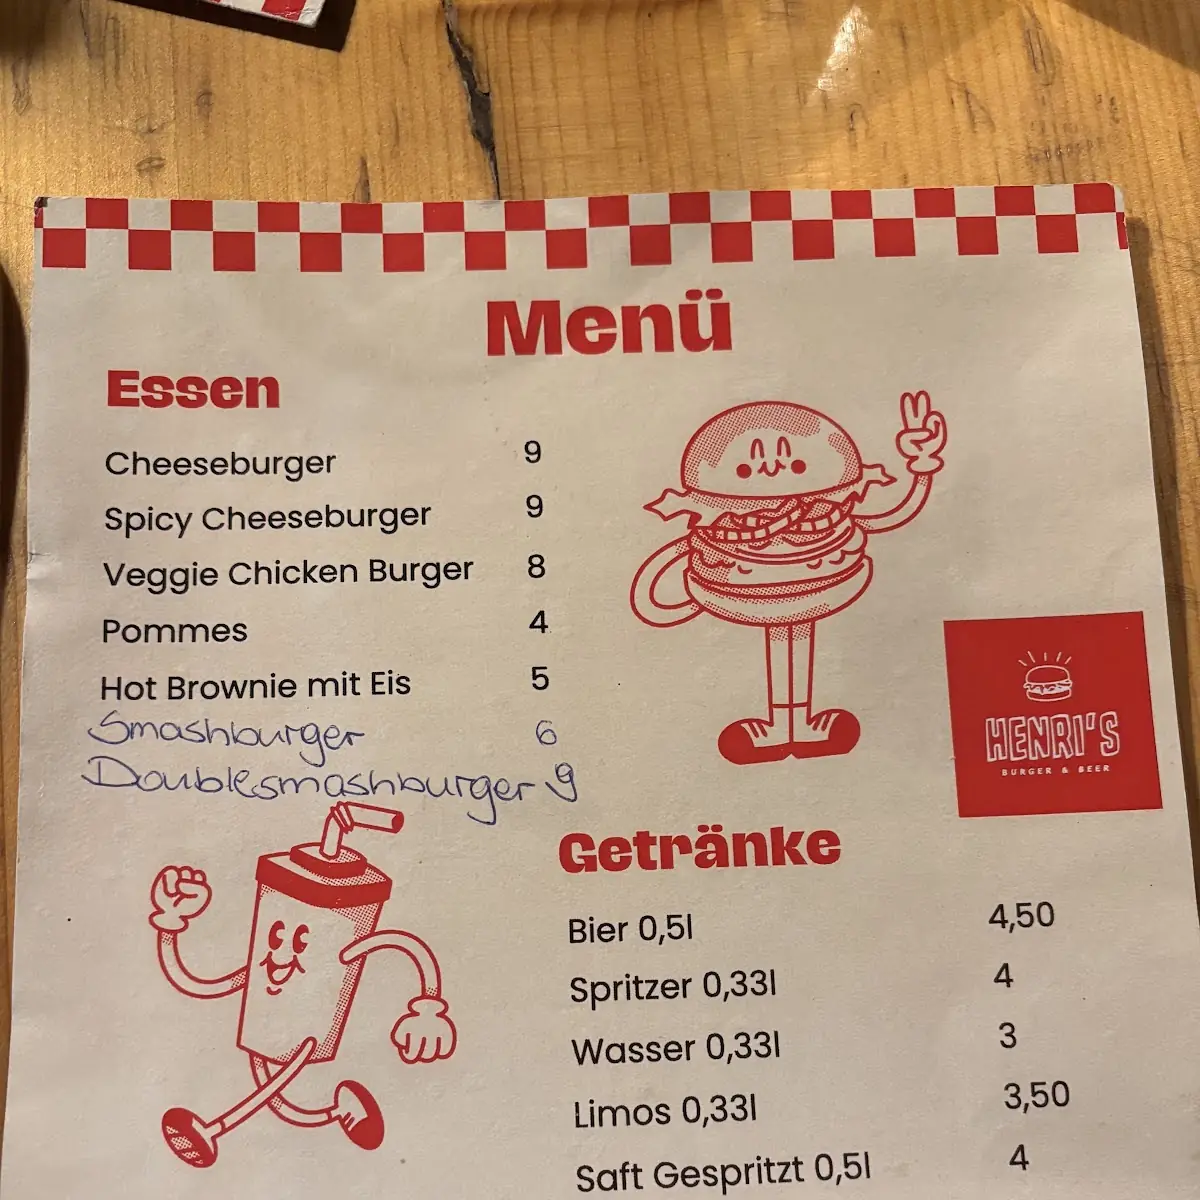 Menü
Essen
Cheeseburger 9
Spicy Cheeseburger 9
Veggie Chicken Burger 8
Pommes 4
Hot Brownie mit Eis 5
Smashburger 6
Doublesmashburger 9
HENRI'S
BURGER & BEER
Getränke
Bier 0,5l 4,50
Spritzer 0,33l 4
Wasser 0,33l 3
Limos 0,33l 3,50
Saft Gespritzt 0,5l 4